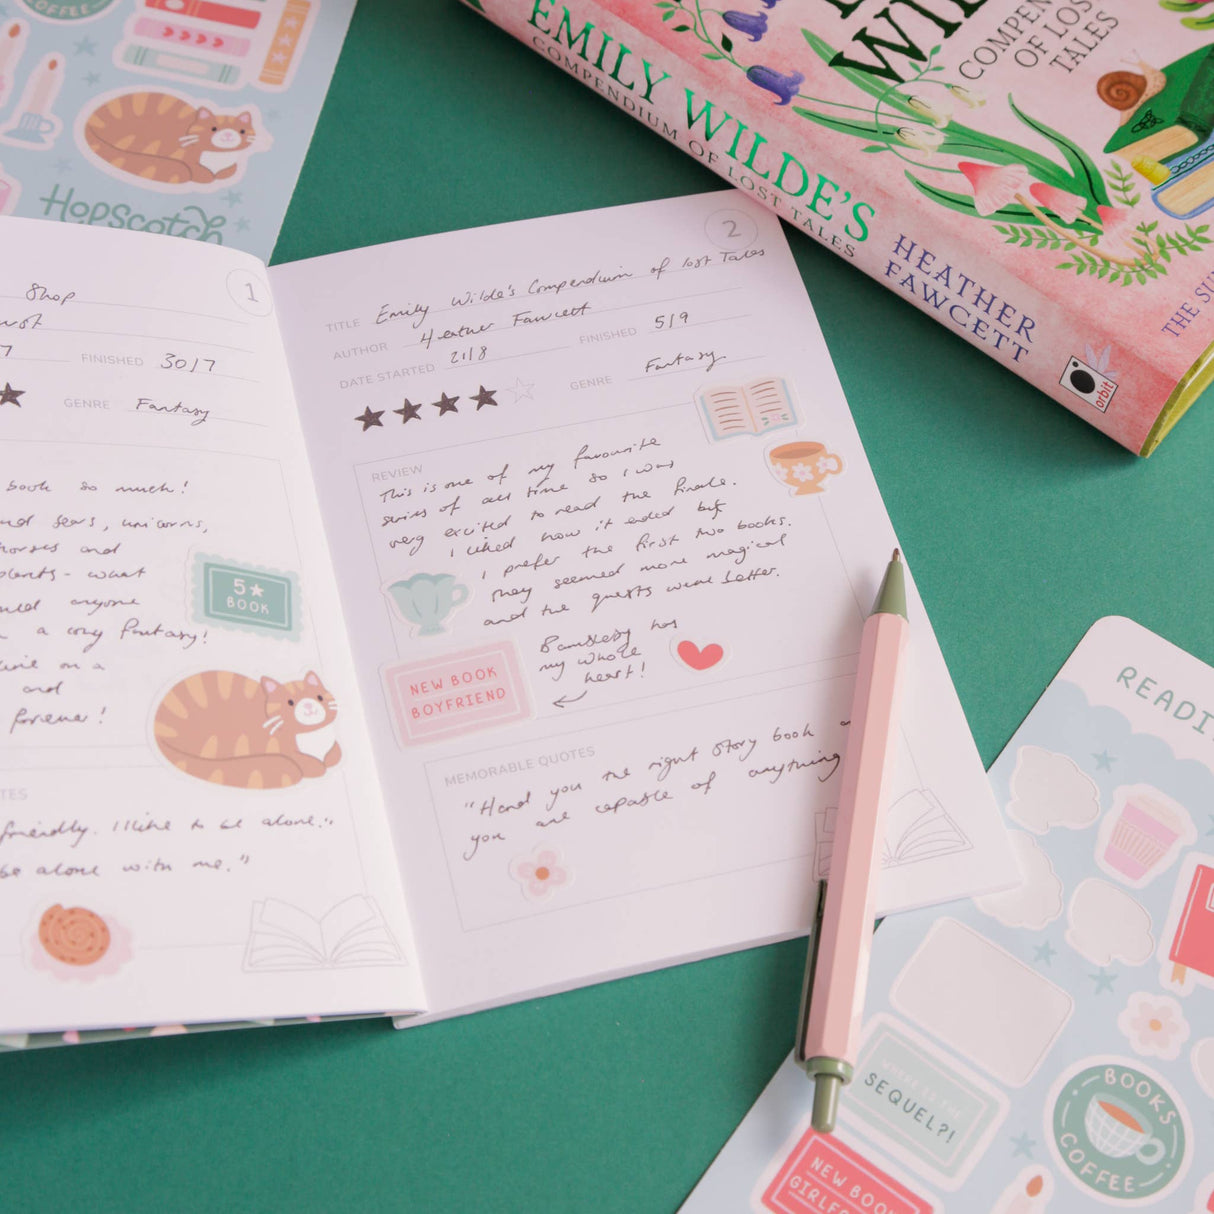 COFFEE
Hopscotch
EMILY WILDE'S
COMPENDIUM OF LOST TALES
HEATHER
FAWCETT
orbit
WILD
COMPEN
OF LOST
TALES
THE SU
1
Shop
7
FINISHED 30/7
GENRE Fantasy
book so much!
unicorns,
horses and
plants - what
anyone
a cosy fantasy!
on a
and
forever!
5★
BOOK
friendly. I like to be alone."
be alone with me."
2
TITLE Emily Wilde's Compendium of lost Tales
AUTHOR Heather Fawcett
DATE STARTED 21/8
FINISHED 5/9
GENRE Fantasy
REVIEW
This is one of my favourite
series of all time so I was
very excited to read the finale.
I liked how it ended but
I prefer the first two books.
They seemed more magical
and the quests were better.
NEW BOOK
BOYFRIEND
Bambleby has
my whole
heart!
MEMORABLE QUOTES
"Hand you the right story book
you are capable of anything
READI
WHERE IS THE
SEQUEL?!
BOOKS
COFFEE
NEW BOOK
GIRLF